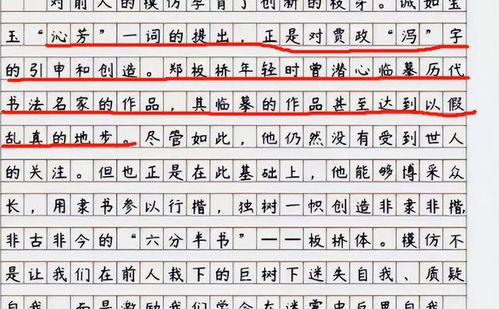 对前人的模仿孕育了创新的枝芽。诚如宝
玉“沁芳”一词的提出，正是对贾政“泻”字
的引申和创造。郑板桥年轻时曾潜心临摹历代
书法名家的作品，其临摹的作品甚至达到以假
乱真的地步。尽管如此，他仍然没有受到世人
的关注。但也正是在此基础上，他能够博采众
长，用隶书参以行楷，独树一帜创造非隶非楷，
非古非今的“六分半书”——板桥体。模仿不
是让我们在前人栽下的巨树下迷失自我、质疑
自我，而是激励我们学会在迷雾中反思自我